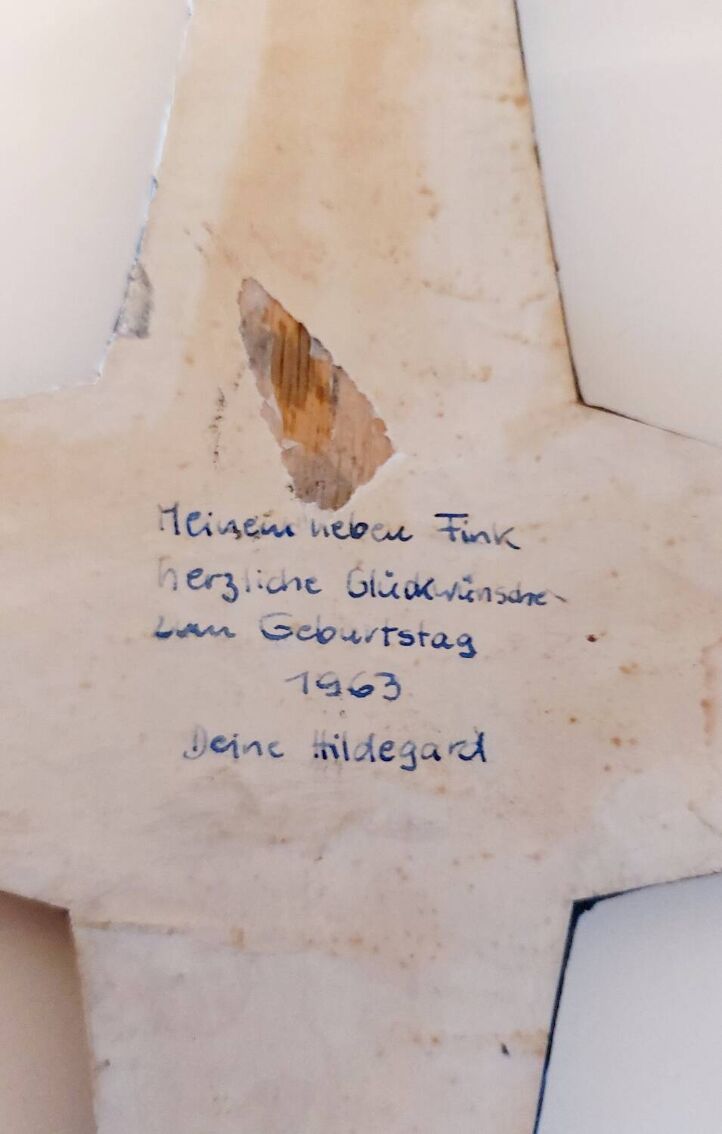 Meinem lieben Fink
herzliche Glückwünsche
zum Geburtstag
1963
Deine Hildegard